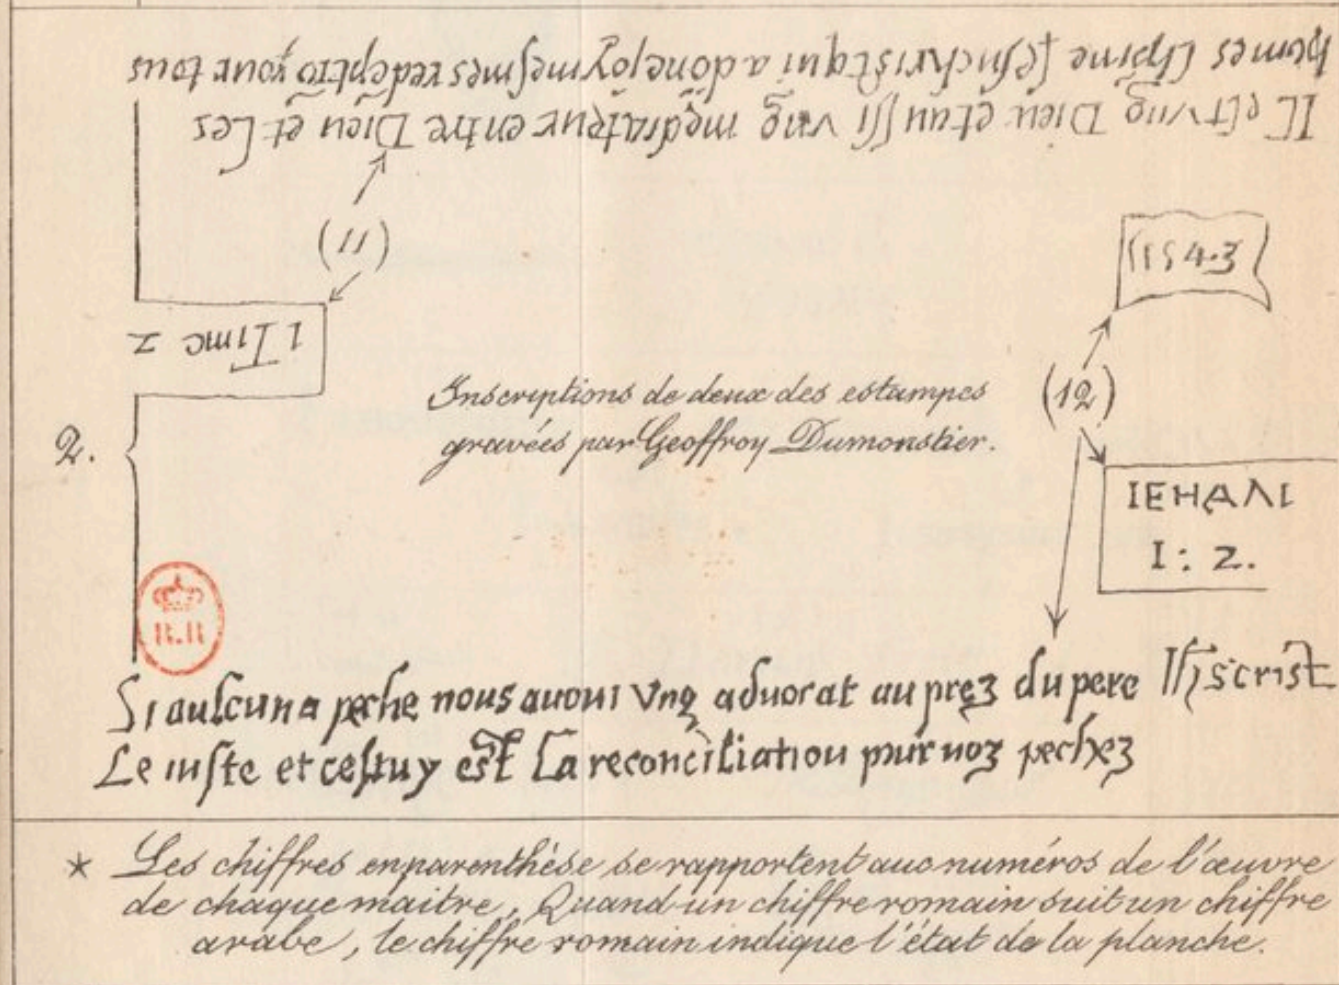 IL est vng Dieu et aussi vng mediateur entre Dieu et Les
humes Lhome Jesuchrist qui a done soy mesmes redeptiō pour tous
(11)
1 Timc 2
1543
(12)
Inscriptions de deux des estampes
gravées par Geoffroy Dumonstier.
2.
IEHAN
I : 2.
R.R
Si aulcun a peche nous auoni vng aduocat au prez du pere Ihs crist
Le iuste et cestuy est La reconciliation pour noz pechez
* Les chiffres en parenthèse se rapportent aux numéros de l'œuvre
de chaque maitre. Quand un chiffre romain suit un chiffre
arabe, le chiffre romain indique l'état de la planche.